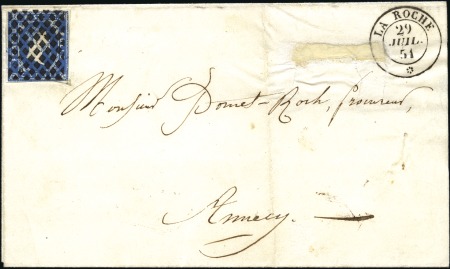 LA ROCHE
29
JUIL.
51
Monsieur Domet-Roch, procureur,
Annecy.